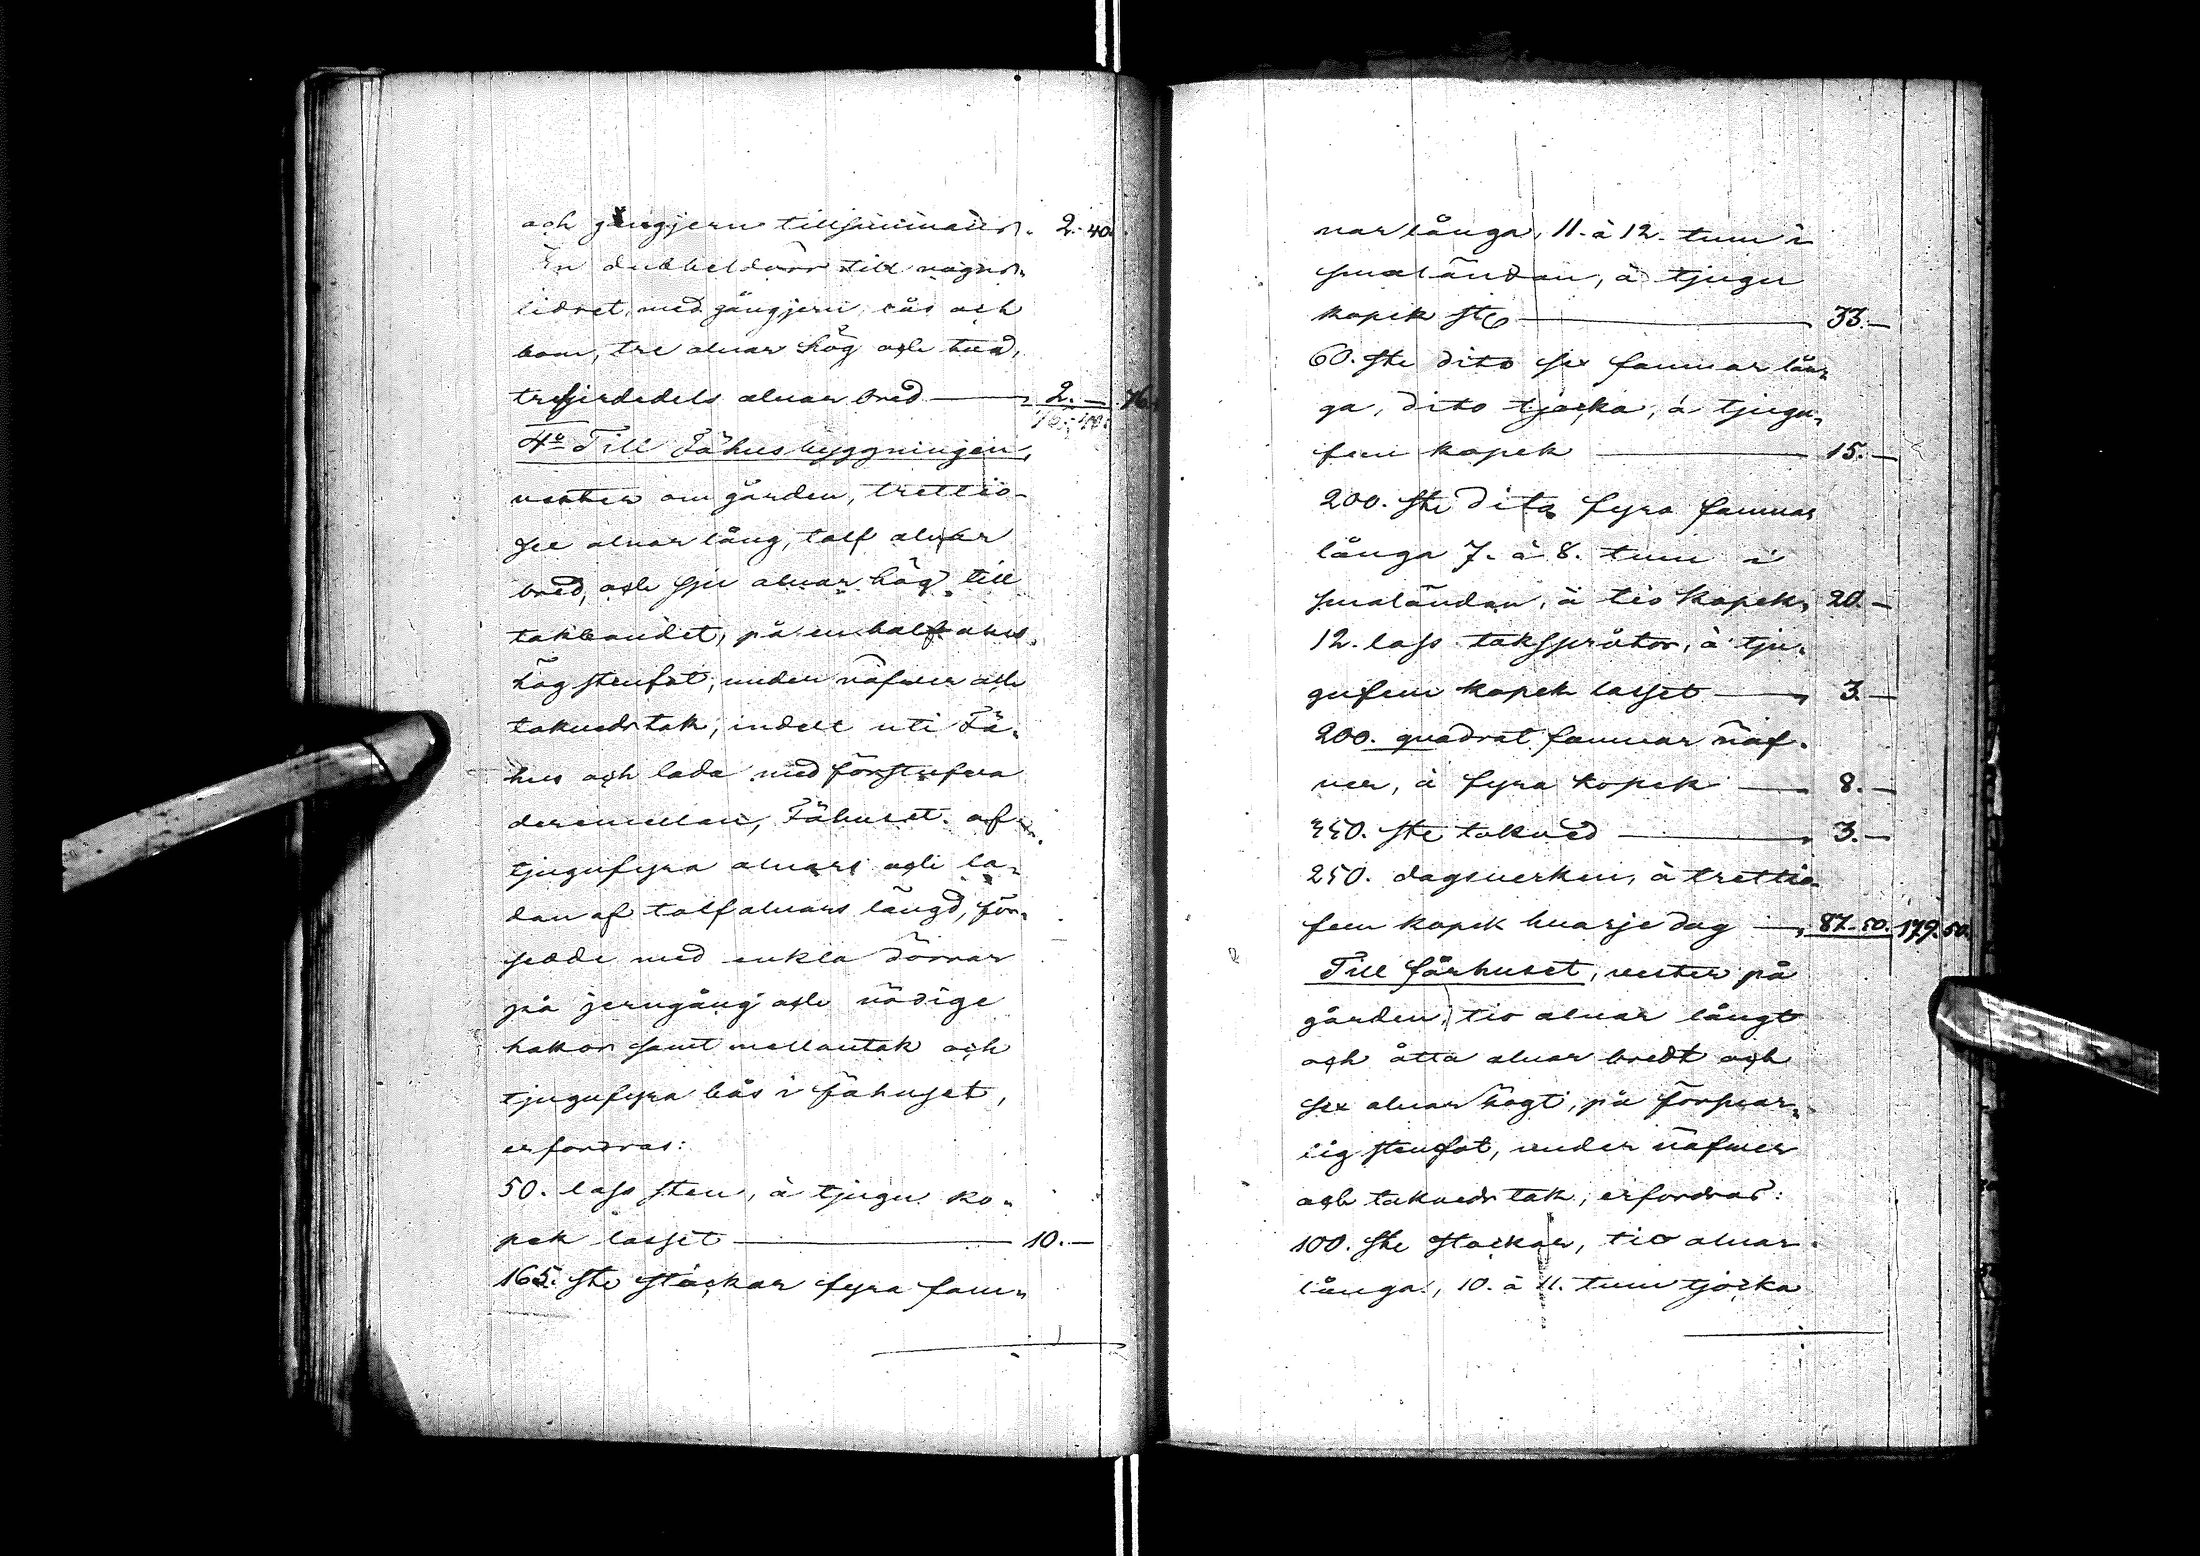 och gångjern tillsammans. 2. 40.
En dubbeldörr till vagns-
lidret, med gångjern, lås och
bom, tre alnar hög och två,
trefjerdedels alnar bred — 2. — 76.
76. 40.
4o Till Fähusbyggningen,
vester om gården, trettio-
sex alnar lång, tolf alnar
bred, och sju alnar hög till
takbandet, på en half alns
hög stenfot, under näfver och
takvedstak, indelt uti Fä-
hus och lada med förstufva
deremellan, Fähuset af
tjugufyra alnars och la-
dan af tolf alnars längd, för-
sedde med enkla dörrar
på jerngång och nödige
hakor samt mellantak och
tjugufyra bås i fähuset,
erfordras:
50. lass sten, à tjugu ko-
pek lasset — 10. —
165. ste stockar fyra fam-
nar långa, 11. à 12. tum i
smaländan, à tjugu
kopek st — 33. —
60. ste dito sex famnar lån-
ga, dito tjocka, à tjugu-
fem kopek — 15. —
200. ste dito fyra famnar
långa 7. à 8. tum i
smaländan, à tio kopek, 20. —
12. lass taksprötor, à tju-
gufem kopek lasset — 3. —
200. quadrat famnar näf-
ver, à fyra kopek — 8. —
350. ste takved — 3. —
250. dagsverken, à trettio-
fem kopek hvarje dag — 87. 50. 179. 50.
Till fårhuset, vester på
gården, tio alnar långt
och åtta alnar bredt och
sex alnar högt, på försvar-
lig stenfot, under näfver
och takvedstak, erfordras:
100. ste stockar, tio alnar
långa, 10. à 11. tum tjocka